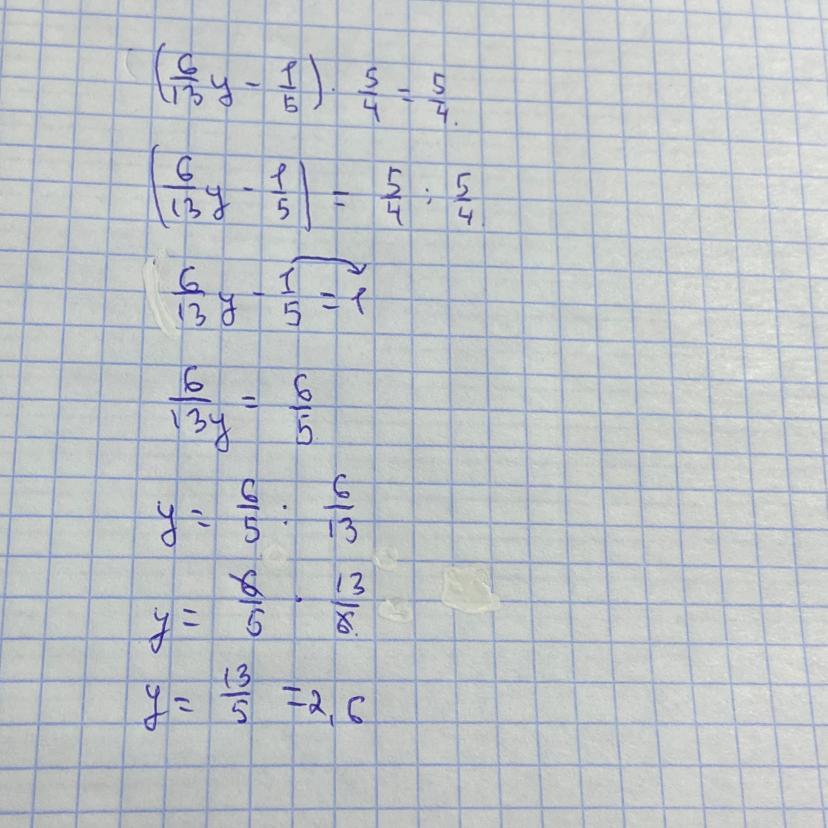 (6/13 y - 1/5) · 5/4 = 5/4.
(6/13 y - 1/5) = 5/4 : 5/4
6/13 y - 1/5 = 1
6/13y = 6/5
y = 6/5 : 6/13
y = 6/5 · 13/6
y = 13/5 = 2,6